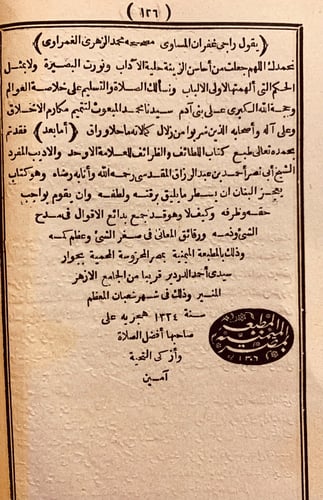 (١٢٦)
(يقول راجي غفران المساوي مصححه محمد الزهري الغمراوي)
نحمدك اللهم جعلت من أحاسن الزينة حلية الآداب ونورت البصيرة ولا بمثل
الحكم التي ألهمتها لأولى الألباب ونسألك الصلاة والتسليم على خلاصة العوالم
ورحمة الله الكبرى على بني آدم سيدنا محمد المبعوث لتتميم مكارم الأخلاق
وعلى آله وأصحابه الذين شربوا من زلال كمالاته ما حلا وراق (أما بعد) فقد تم
بحمده تعالى طبع كتاب اللطائف والظرائف للعلامة الأوحد والأديب المفرد
الشيخ أبي نصر أحمد بن عبد الرزاق المقدسي رحمه الله وأثابه رضاه وهو كتاب
يعجز البنان أن يسطر ما يليق برقته ولطفه وان يقوم بواجب
حقه وظرفه وكيف لا وهو قد جمع بدائع الأقوال في مدح
الشيء وذمه ورقائق المعاني في صغر الشيء وعظم كمه
وذلك بالمطبعة الميمنية بمصر المحروسة المحمية بجوار
سيدي أحمد الدردير قريبا من الجامع الأزهر
المنير وذلك في شهر شعبان المعظم
سنة ١٣٢٤ هجرية على
صاحبها أفضل الصلاة
وأزكى التحية
آمين
المطبعة
الميمنية
بمصر
١٣٠٦